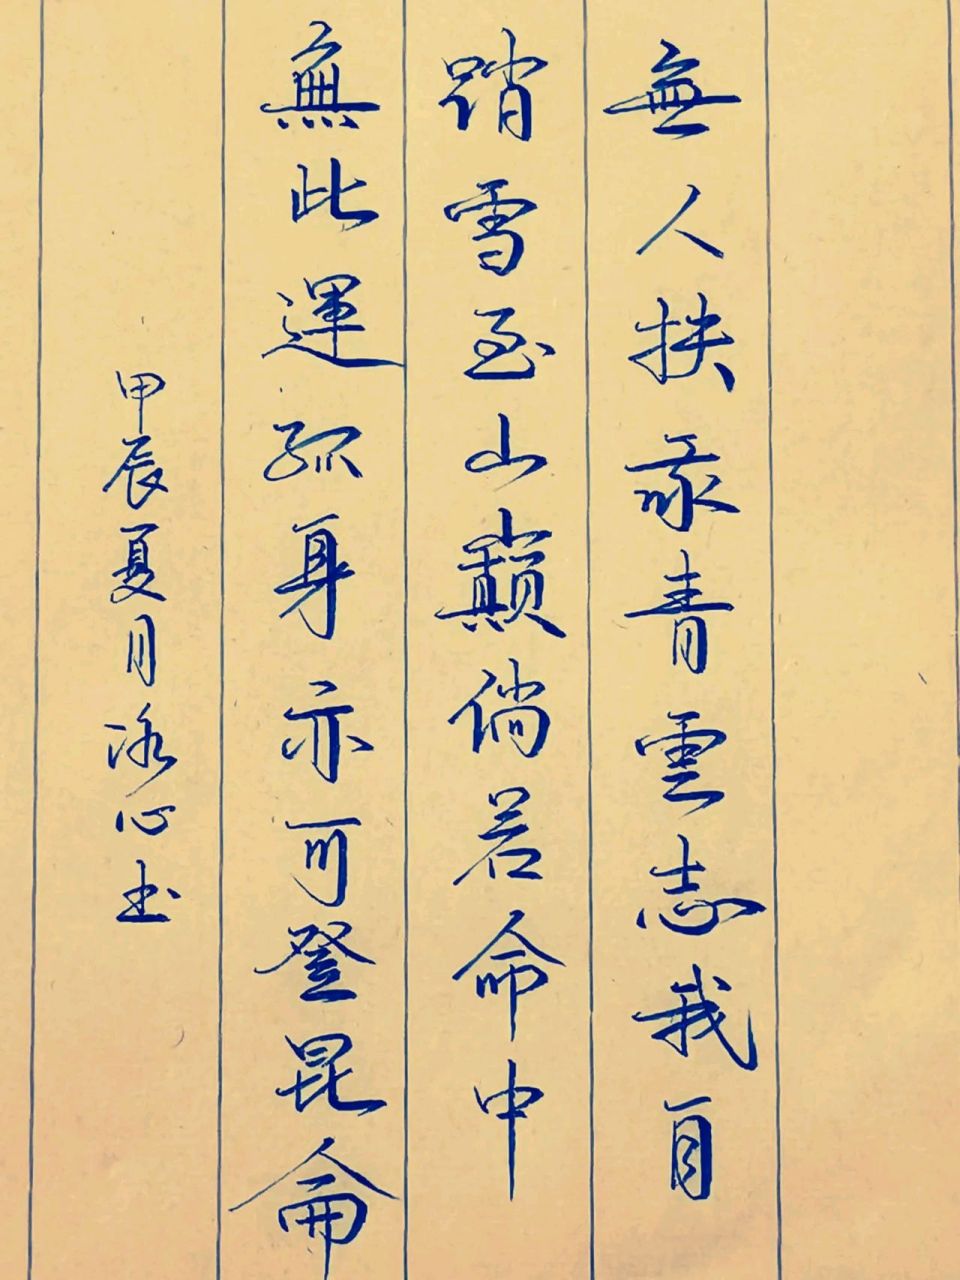 無人扶我青雲志我自
踏雪至山巔倘若命中
無此運孤身亦可登昆侖
甲辰夏月冰心书